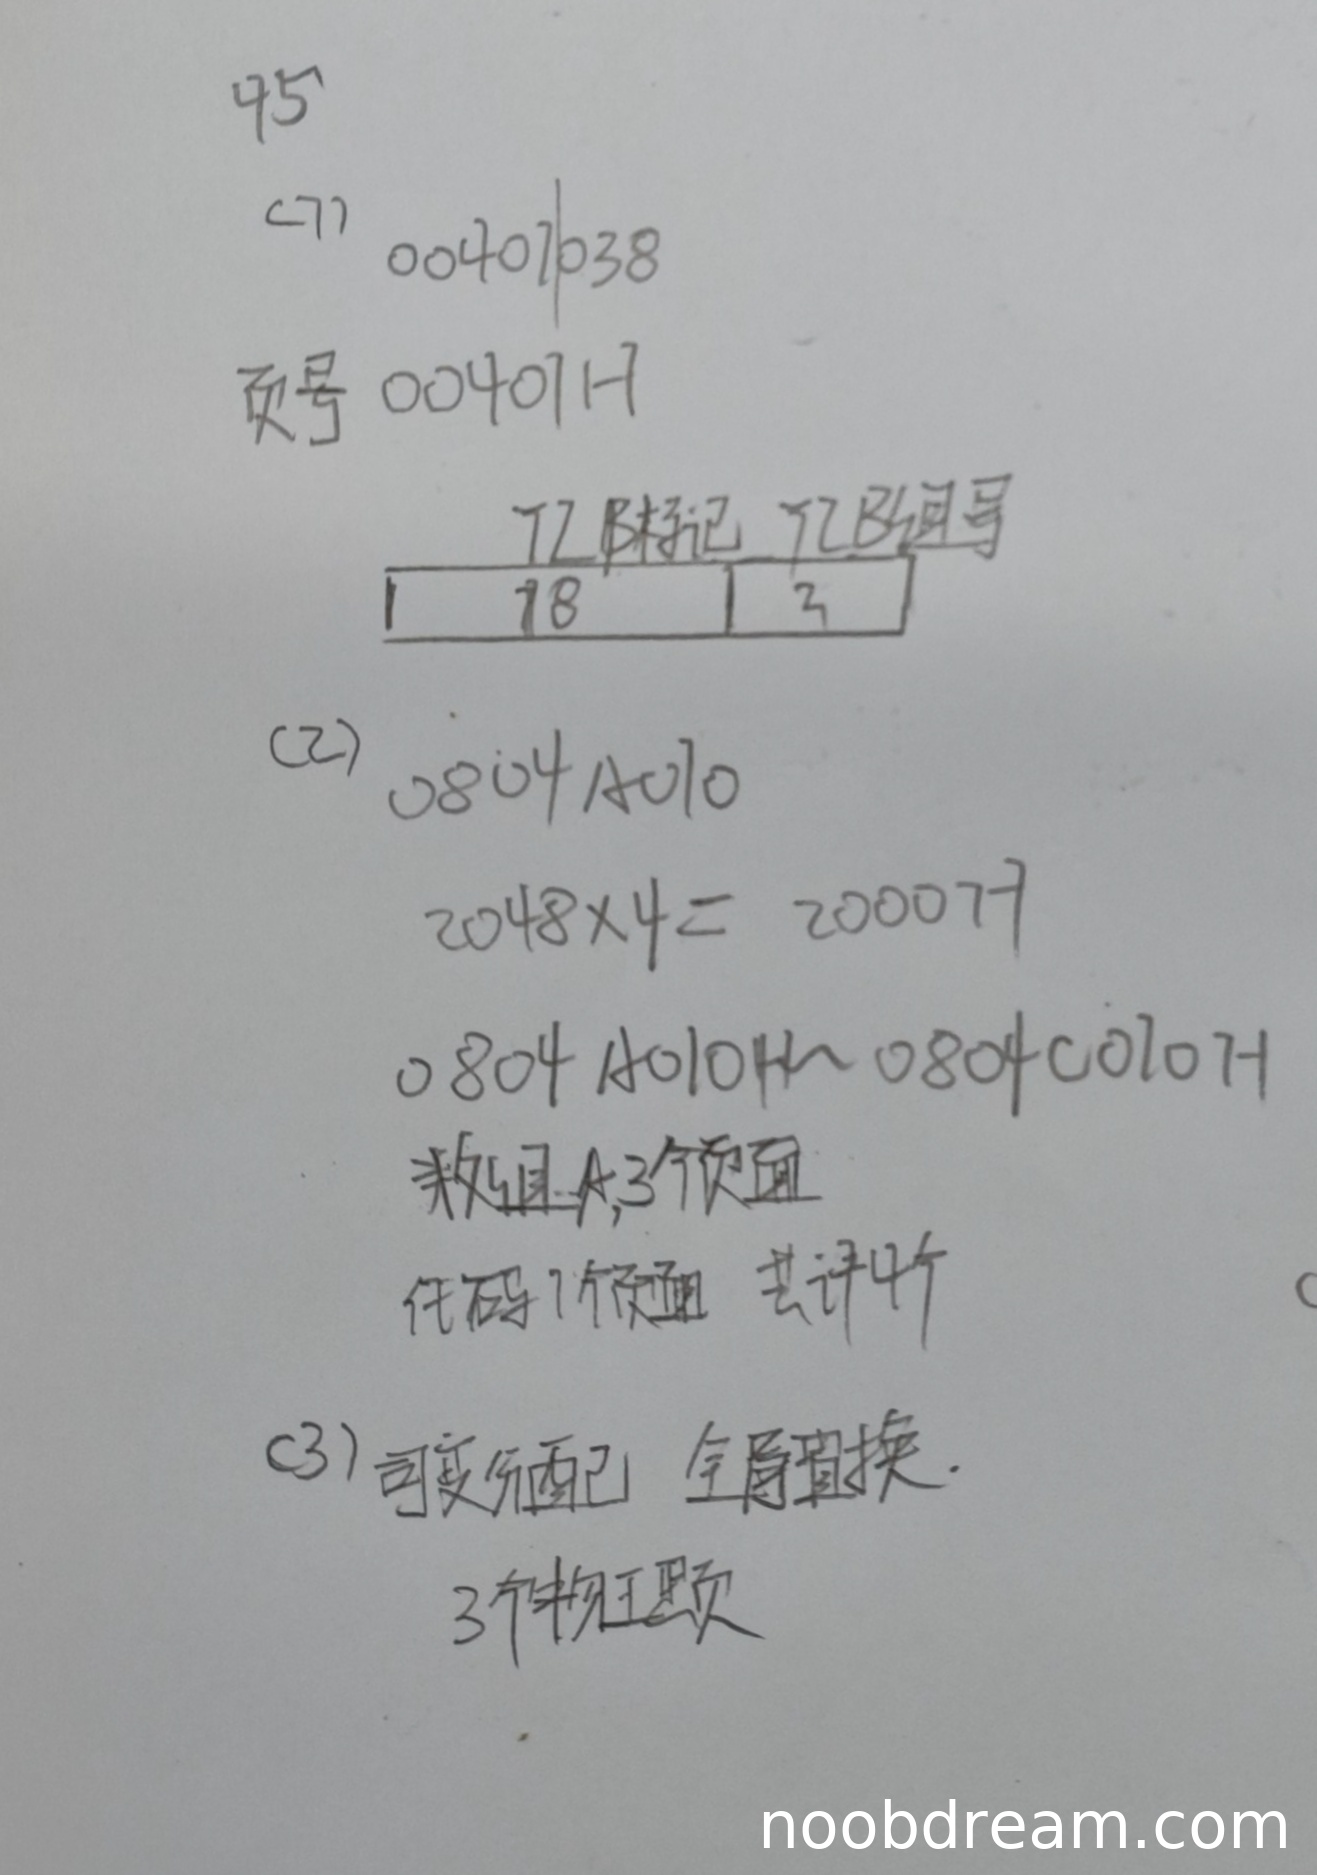 45
(1) 00401038
页号 00401H
TLB标记 TLB组号
18 3
(2) 0804A010
2048×4= 2000H
0804A010H~0804C010H
数组A,3个页面
代码1个页面 共计4个
(3) 可变分配 全局置换.
3个物理页
noobdream.com